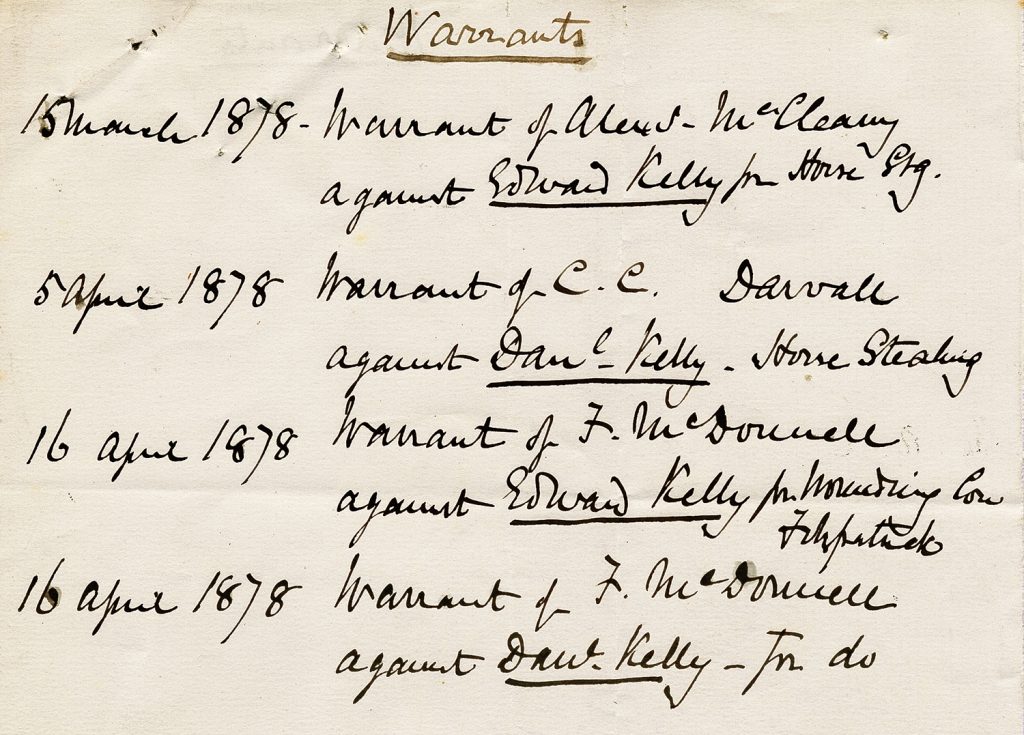 Warrants
15 March 1878 - Warrant of Alexd - McCleary
against Edward Kelly for Horse Stg.
5 April 1878 Warrant of C. C. Darvall
against Danl - Kelly - Horse Stealing
16 April 1878 Warrant of F. McDonnell
against Edward Kelly for Wounding Con
Fitzpatrick
16 April 1878 Warrant of F. McDonnell
against Danl. Kelly - for do